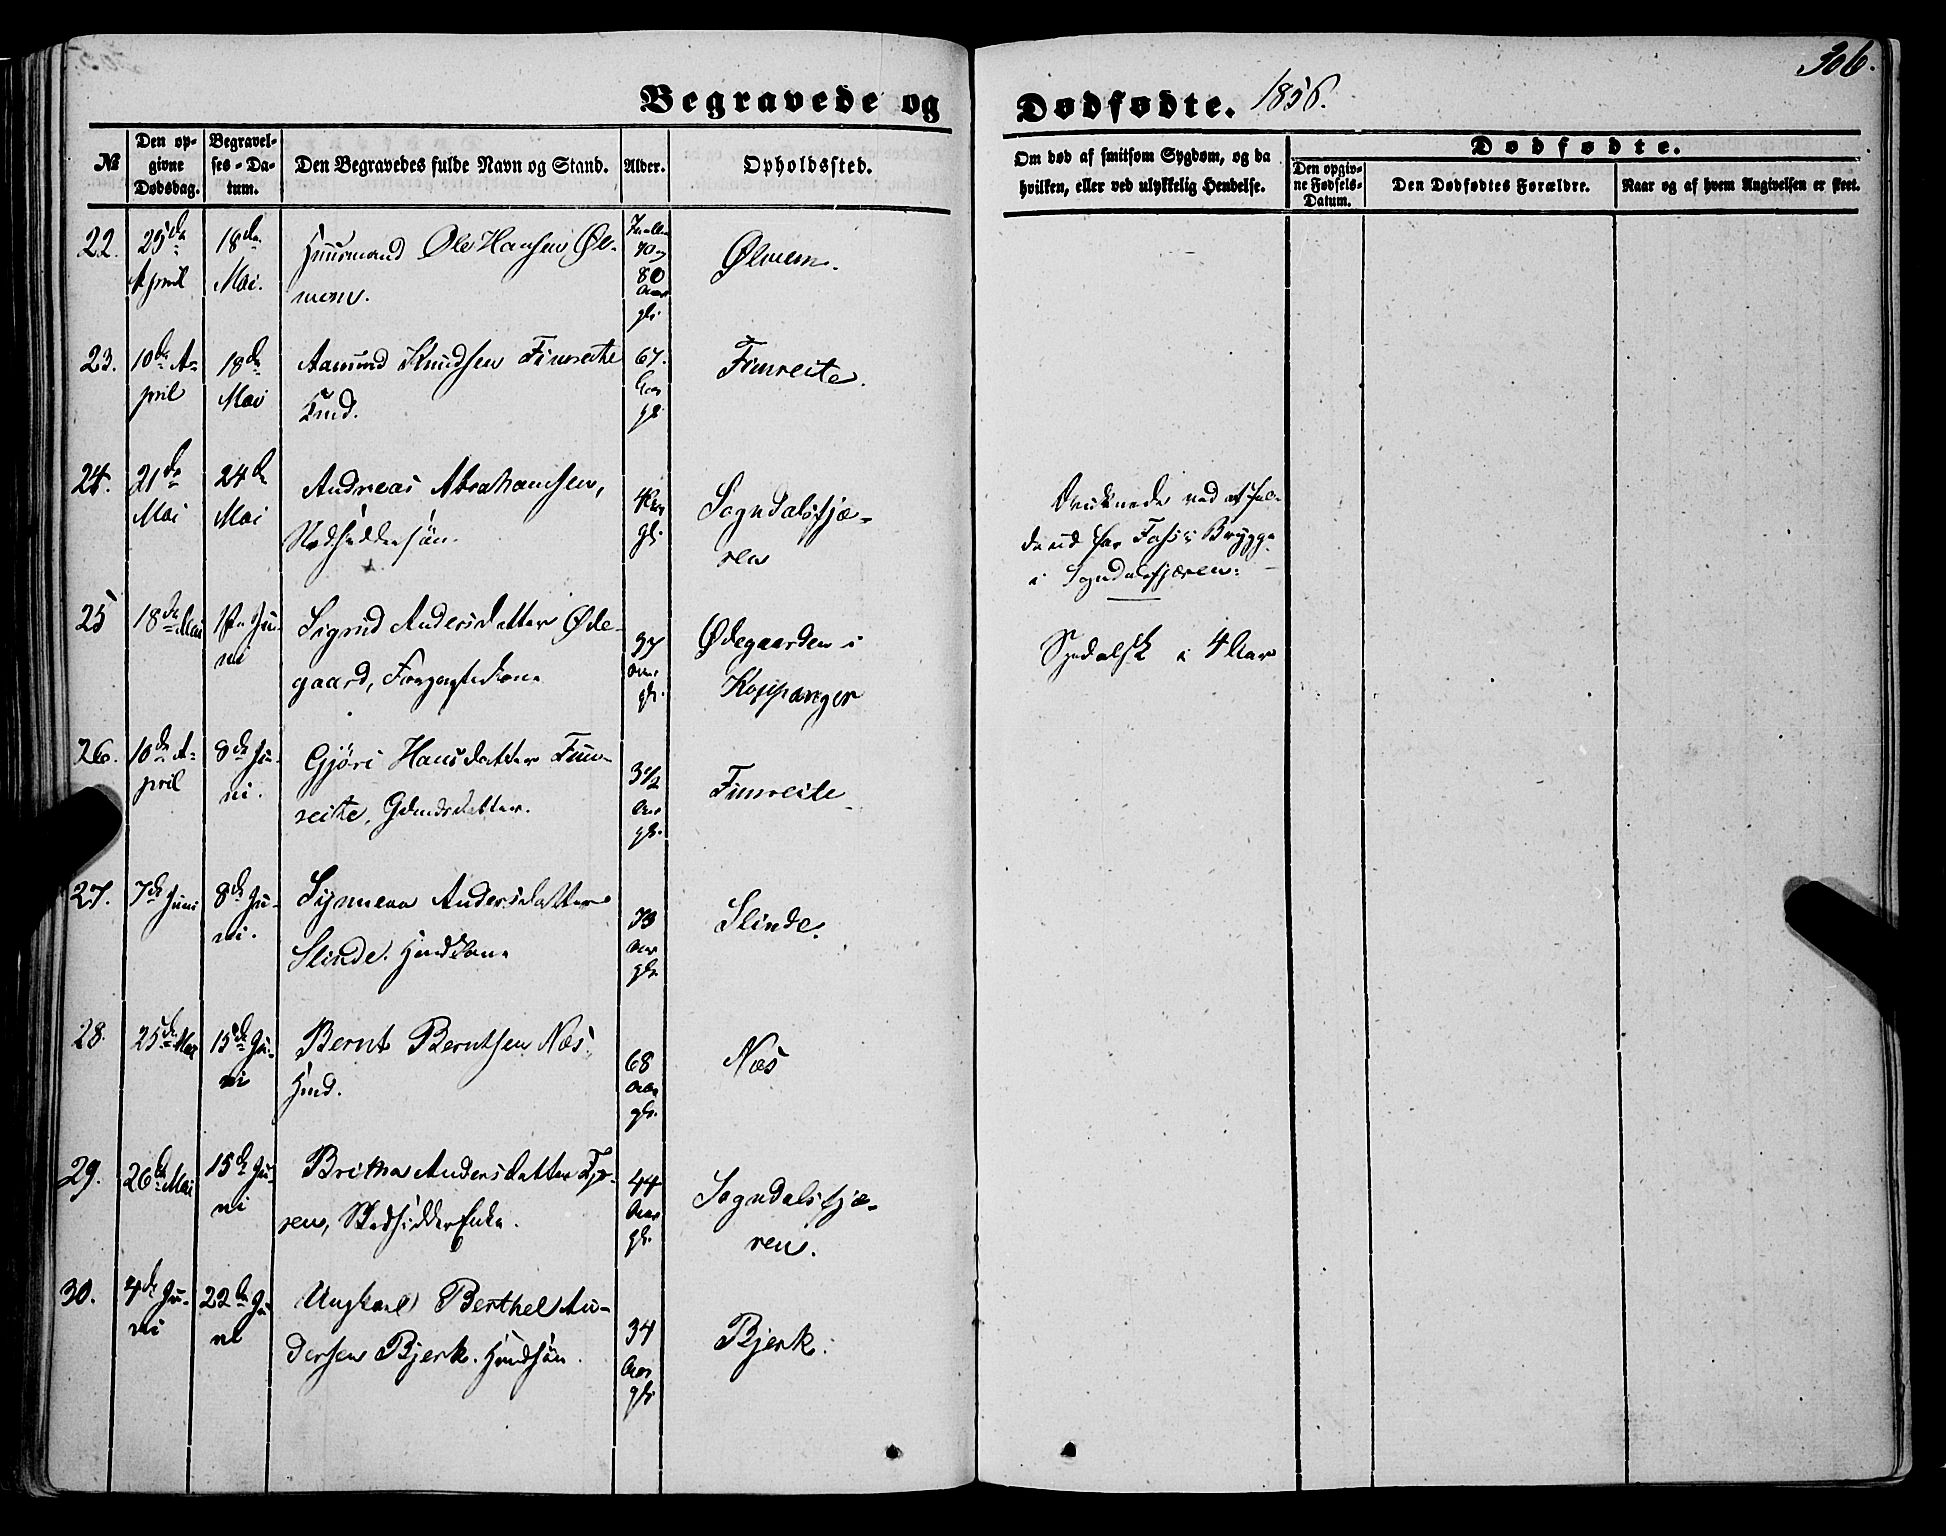 306.
Begravede og Dødfødte. 1856.
№
Den opgivne Dødsdag.
Begravelses-Datum.
Den Begravedes fulde Navn og Stand.
Alder.
Opholdssted.
Om død af smitsom Sygdom, og da
hvilken, eller ved ulykkelig Hendelse.
Dødfødte.
Den opgivne Fødsels-Datum.
Den Dødfødtes Forældre.
Naar og af hvem Angivelsen er skeet.
22. 25de April 18de Mai. Huusmand Ole Hansen Øl-
mem. 80 Aar gl. Ølmem.
23. 10de A-
pril 18de Mai Aamund Knudsen Fimreite
67 Aar gl. Fimreite.
24. 21de Mai 24de Mai Andreas Abrahamsen,
4 Aar gl. Sogndalsfjæ-
ren
Druknede ved at fal-
de ud for Brygge
i Sogndalsfjæren.
25 18de Mai Ju-
ni Sigrid Andersdatter Øde-
gaard, 37 Aar gl. Ødegaarden i
Kaupanger
i 4 Aar
26. 10de A-
pril 8de Ju-
ni. Gjøri Hansdatter Fim-
reite, 3 1/2 Aar gl. Fimreite
27. 7de Juni 8de Ju-
ni. Synneva Andersdatter
Slinde. Aar gl. Slinde.
28. 25de Mai 15de Ju-
ni Bernt Berntsen Næs,
68 Aar gl. Næs
29. 26de Mai 15de Ju-
ni Britha Andersdatter Fjæ-
ren, Enke. 44 Aar gl. Sogndalsfjæ-
ren.
30. 4de Ju-
ni 22de Ju-
ni Ungkarl Berthel An-
dersen Bjerk. 34 Aar gl. Bjerk.